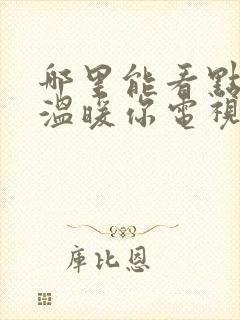 哪里能看點
溫暖你電視
庫比恩